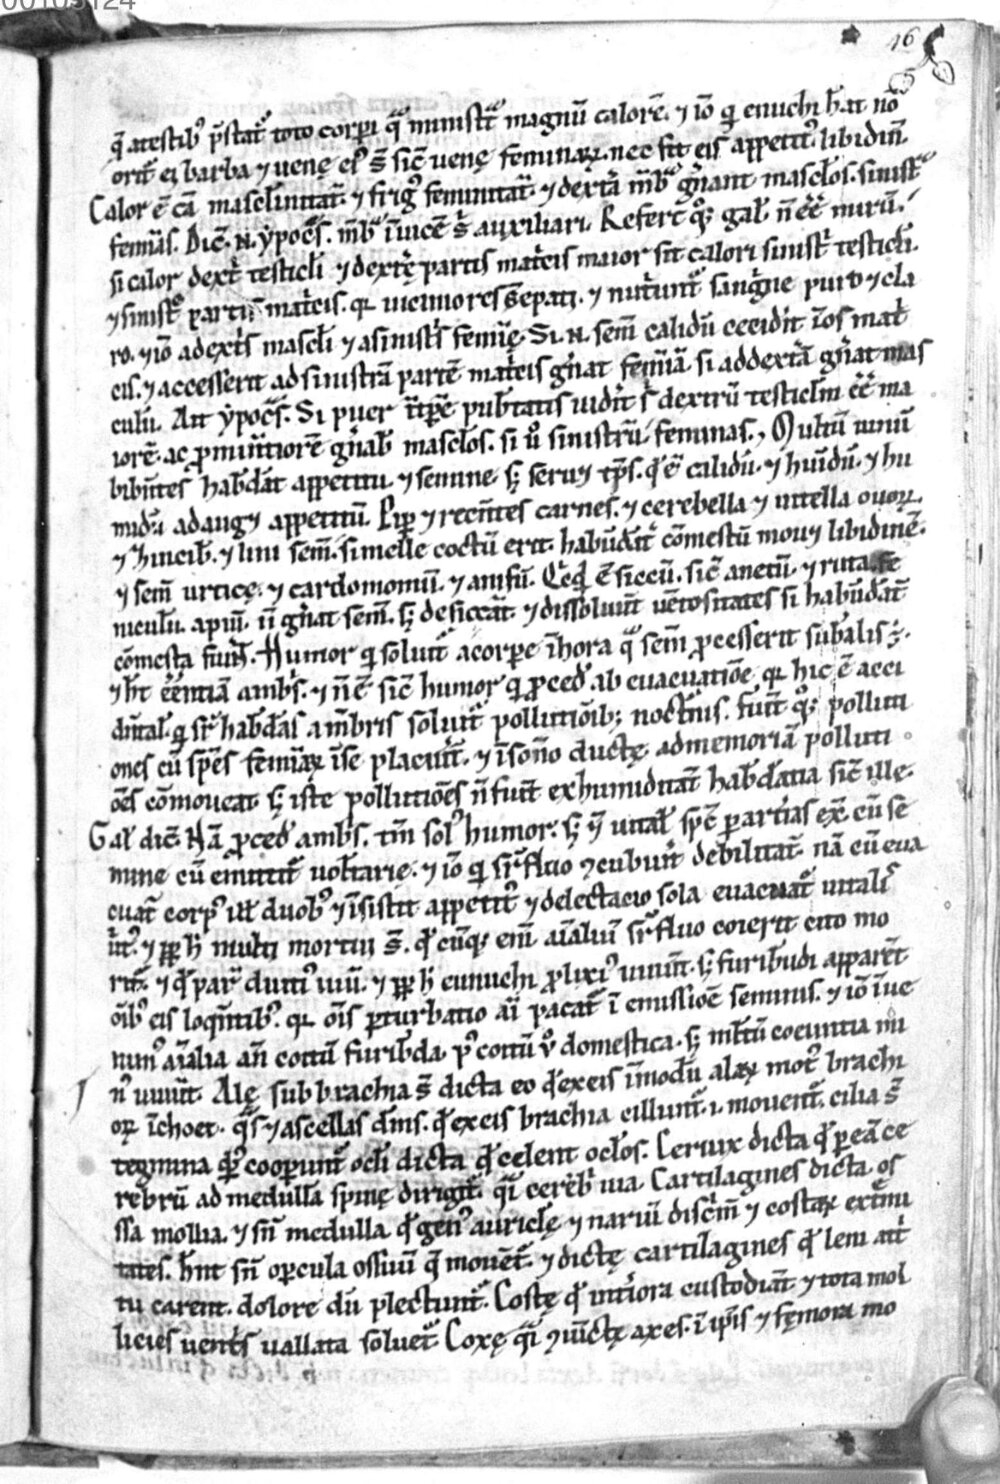 00103124
16
q̄ atestib᷒ p̄stat᷑ toto corp̱i q̄ ministt᷑ magnū calorē. ⁊ iō q̱ enuchi h̄at nō
orit᷑ ei barba ⁊ uenę ei᷒ s̄ sic̄ uenę feminaꝝ. nec sit eis appetit᷒ libidin̄.
Calor ē cā masclinitat᷑. ⁊ frig᷒ feminitat᷑. ⁊ dext᷑a m̄b᷑ gn̄ant masclos. sinist᷑
femīas. Dic̄. N. ypoc᷑s. m̄b᷑ īuicē s᷑ auxiliari. Refert q᷒ꝫ gal̄. n̄ ēē mirū.
si calor dext᷑ testicli ⁊ dext᷑ę partis mat᷑cis maior sit calori sinist᷑ testicli.
⁊ sinist᷑ partis mat᷑cis. qꝛ uiciniores s̄ epati. ⁊ nut᷑unt᷑ sangᵢne puro ⁊ cla
ro. ⁊ iō adext᷑s mascli ⁊ asinist᷑s femīę. Si. N. sem̄ calidū cecidit᷑ ī os mat᷑
cis. ⁊ accesserit ad sinistrā partē mat᷑cis gn̄at femīā. si addext᷑ā gn̄at mas
culū. Ait ypoc᷑s. Si puer tp̄e pub᷑tatis uidit᷑ s᷑ dextrū testiclm̄ ēē ma
iorē. ac p̱min̄tiorē gn̄ab᷑ masclos. si u᷒ sinistrū feminas., Multū uinū
bib̄ntes hab᷑dāt appetitu ⁊ semine. sꝫ seruꝫ tp̄s. q᷑ ē calidū. ⁊ huīdū. ⁊ hu
midū adaugꝫ appetitū. Pip̱ ⁊ recēntes carnes. ⁊ cerebella ⁊ uitella ouoꝝ.
⁊ zincib᷑. ⁊ lini sem̄. si melle coctū erit. habūdāt᷑ cōmestū mouꝫ libidinē.
⁊ sem̄ urticę. ⁊ cardomomū. ⁊ amsū. Qcq᷑d ē siccū. sic̄ anetū. ⁊ ruta. fe
niculū. apiū. n̄ gn̄at sem̄. sꝫ desiccāt. ⁊ dissoluūt uētositates si hab᷑dāt᷑
cōmesta fiūt. Humor q̱ soluit᷑ acorpe īhora q᷑ sem̄ p̱cesserit subalis ÷.
⁊ h᷑t ēentiā amb᷑s. ⁊ n̄ ē sic̄ humor q̱ p̱ced᷑ ab euacuatiōe qꝛ hic ē acci
dn̄tal᷑. q̱ sr᷑ hab᷑dās a mēbris soluit᷑ pollutiōib᷒ꝫ noct᷑nis. fiūt q᷒ꝫ polluti
ones cū sp̄es femīaꝝ īse placuit᷑. ⁊ ī sono ductę admemoriā polluti
ōes cōmoueat. sꝫ iste pollutiōes n̄ fiūt ex humiditat᷑ hab᷑datia sic̄ ille.
Gal᷑ dic̄. Nā p̱ced᷑ amb᷑s. tm̄ sol᷒ humor. sꝫ ⁊ uital᷑ spc̄ p̱ art᷑ias ex᷑ cū se
mine cū emittit᷑ uol᷑tarie. ⁊ iō q̱ sr᷑fluo ꝯcubuit᷑ debilitat᷑. nā cū eua
cuat᷑ corp᷒ ill᷑ duob᷒ ⁊ īsistit appetit᷒ ⁊ delectacio sola euacuat᷑ uitali᷒
ūt᷒. ⁊ pp̱ h᷑ multi mortui s̄. q᷑ cūqꝫ em̄ aīaliū sr᷑fluo coierit cito mo
rit᷑. ⁊ q᷑ par᷒ diuti᷒ uiū. ⁊ pp̱ h᷑ eunuchi p̱lixi᷒ uiuūt. sꝫ furibūdi apparēt
ōib᷒ eis loqn̄tib᷒. qꝛ ōis p̱turbatio aī pacat᷑ ī emissiōe seminis. ⁊ iō īue
nim᷒ aīalia an̄ coitū furib᷑da. p᷒ coitū u᷒ domestica. sꝫ mltū coeuntia mi
n᷒ uiuūt. Alę sub brachia s̄ dicta eo q᷑ exeis īmodū alaꝝ mot᷒ brachi
oꝝ īchoet. q᷑s ⁊ ascellas dn̄s. q᷑ exeis brachia cillunt᷑. i. mouent᷑. cilia s̄
tegmina q᷑b᷒ coopiunt᷑ ocli dicta q᷑ celent oclos. Ceruix dicta q᷑ p̱ eā ce
rebrū ad medullā spinę dirigit᷑. q᷑i cereb᷑ uia. Cartilagines dicta. os
ssa mollia. ⁊ sn̄ medulla q᷑ gen᷒ auriclę ⁊ nariū discm̄ ⁊ costaꝝ extmi
tates. hn̄t sn̄ opcula ossiuī q᷑ mouēt᷑. ⁊ dictę cartilagines q᷑ leni att᷑
tu carent. dolore dū plectunt᷑. Costę q᷑ int᷑iora custodiāt ⁊ tota mol
licies uent᷑s uallata soluet᷑. Coxę q᷑i ꝯiūctę axes. ī ip̄is ⁊ fęmora mo